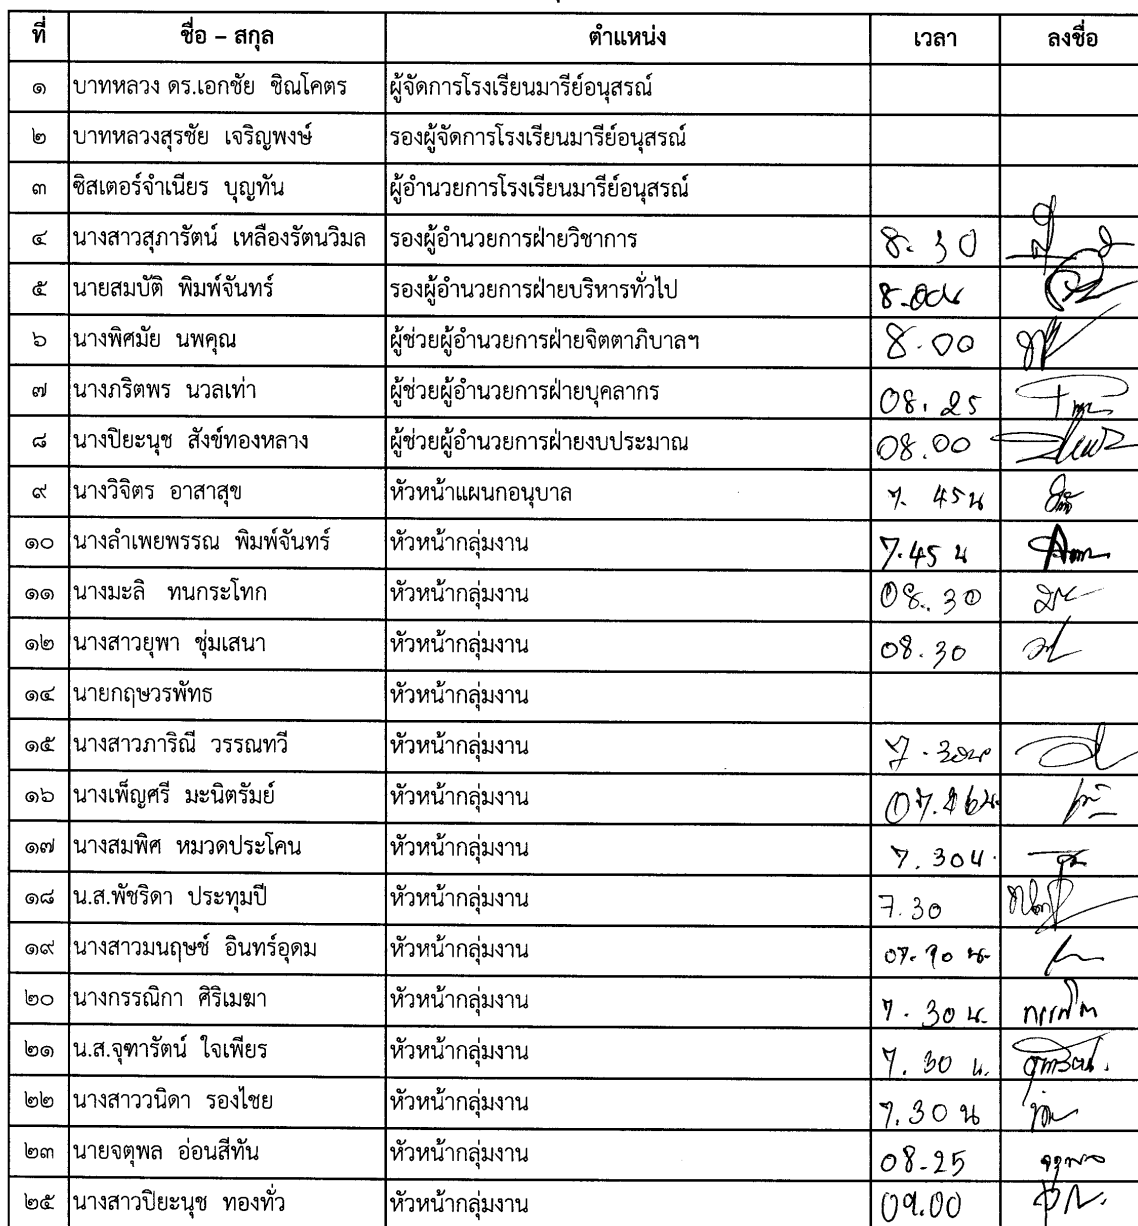 ที่ ชื่อ – สกุล ตำแหน่ง เวลา ลงชื่อ
๑ บาทหลวง ดร.เอกชัย ชิณโคตร ผู้จัดการโรงเรียนมารีย์อนุสรณ์
๒ บาทหลวงสุรชัย เจริญพงษ์ รองผู้จัดการโรงเรียนมารีย์อนุสรณ์
๓ ซิสเตอร์จำเนียร บุญทัน ผู้อำนวยการโรงเรียนมารีย์อนุสรณ์
๔ นางสาวสุภารัตน์ เหลืองรัตนวิมล รองผู้อำนวยการฝ่ายวิชาการ 8.30
๕ นายสมบัติ พิมพ์จันทร์ รองผู้อำนวยการฝ่ายบริหารทั่วไป
๖ นางพิศมัย นพคุณ ผู้ช่วยผู้อำนวยการฝ่ายจิตตาภิบาลฯ 8.00
๗ นางภริตพร นวลเท่า ผู้ช่วยผู้อำนวยการฝ่ายบุคลากร 08.25
๘ นางปิยะนุช สังข์ทองหลาง ผู้ช่วยผู้อำนวยการฝ่ายงบประมาณ 08.00
๙ นางวิจิตร อาสาสุข หัวหน้าแผนกอนุบาล 7.45น
๑๐ นางลำเพยพรรณ พิมพ์จันทร์ หัวหน้ากลุ่มงาน 7.45 น
๑๑ นางมะลิ ทนกระโทก หัวหน้ากลุ่มงาน 08.30
๑๒ นางสาวยุพา ชุ่มเสนา หัวหน้ากลุ่มงาน 08.30
๑๔ นายกฤษวรพัทธ หัวหน้ากลุ่มงาน
๑๕ นางสาวภาริณี วรรณทวี หัวหน้ากลุ่มงาน 7.30น
๑๖ นางเพ็ญศรี มะนิตรัมย์ หัวหน้ากลุ่มงาน
๑๗ นางสมพิศ หมวดประโคน หัวหน้ากลุ่มงาน 7.30น.
๑๘ น.ส.พัชริดา ประทุมปี หัวหน้ากลุ่มงาน 7.30
๑๙ นางสาวมนฤษช์ อินทร์อุดม หัวหน้ากลุ่มงาน
๒๐ นางกรรณิกา ศิริเมฆา หัวหน้ากลุ่มงาน 7.30 น.
๒๑ น.ส.จุฑารัตน์ ใจเพียร หัวหน้ากลุ่มงาน 7.30 น.
๒๒ นางสาววนิดา รองไชย หัวหน้ากลุ่มงาน 7.30 น
๒๓ นายจตุพล อ่อนสีทัน หัวหน้ากลุ่มงาน 08-25
๒๕ นางสาวปิยะนุช ทองทั่ว หัวหน้ากลุ่มงาน 09.00